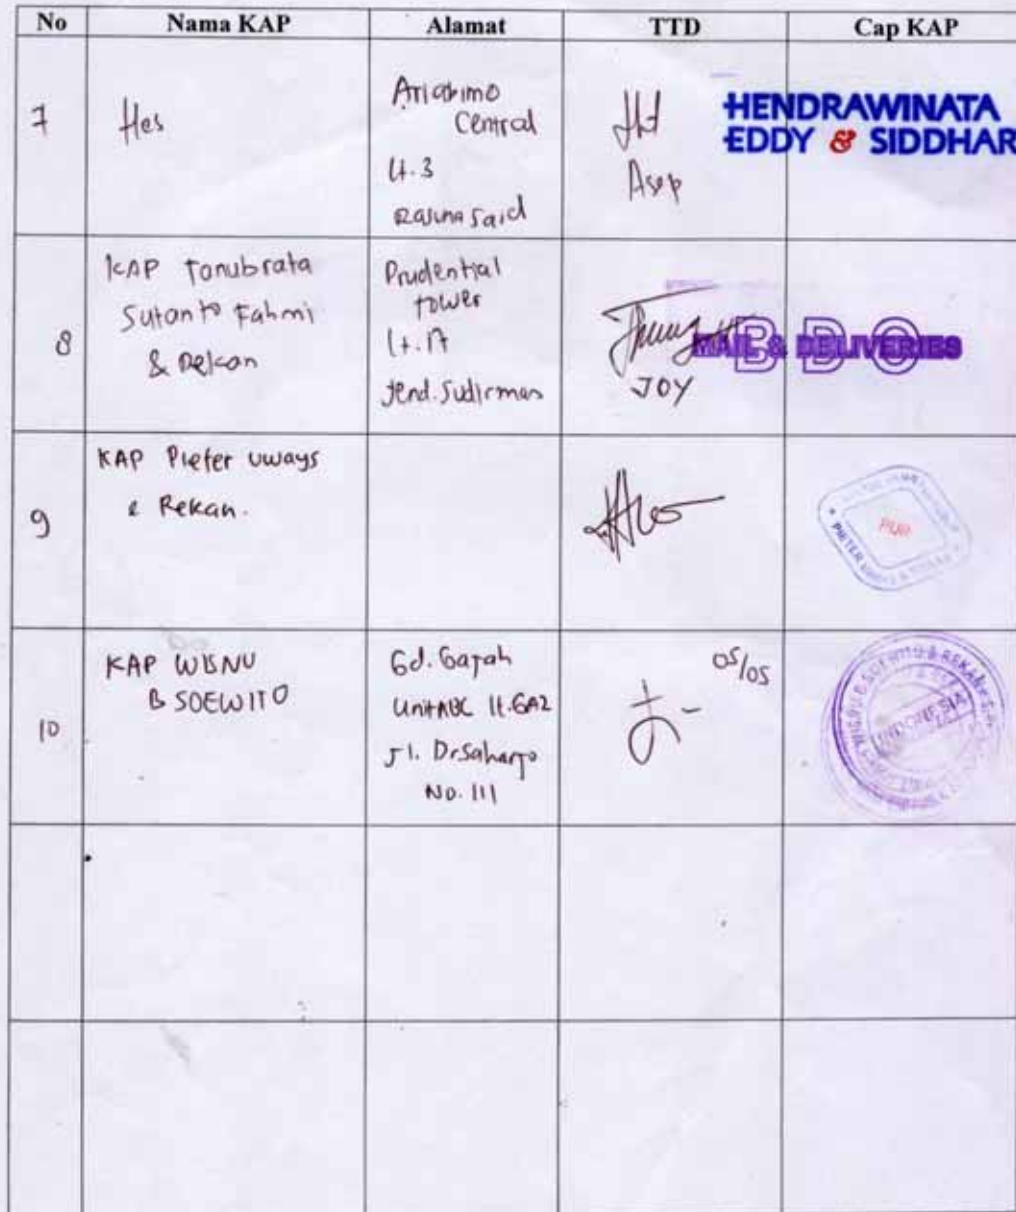 No Nama KAP Alamat TTD Cap KAP
7 Hes
Ariobimo
Central
lt.3
Rasuna Said
Asep
HENDRAWINATA
EDDY & SIDDHAR
8
KAP Tanubrata
Sutanto Fahmi
& Rekan
Prudential
tower
lt.17
Jend. Sudirman
JOY
BDO
MAIL & DELIVERIES
9
KAP Pieter uways
& Rekan.
PUR
PIETER UWAYS & REKAN
10
KAP WISNU
B SOEWITO
Gd. Gajah
Unit ABC lt.6A2
Jl. Dr Saharjo
No. 111
05/05
WISNU B. SOEWITO & REKAN
INDONESIA